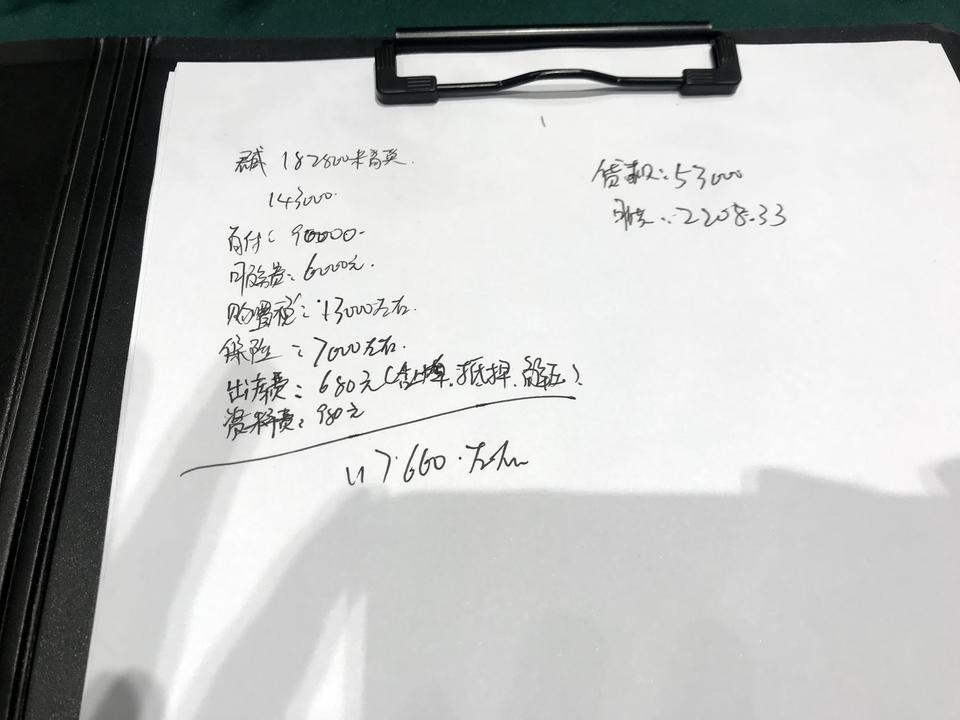 182800米高英.
143000.
首付: 90000-
服务费: 6000元.
购置税: 13000左右.
保险: 7000左右.
出库费: 680元(含上牌.抵押.解压).
资料费: 980元
117.660.左右
贷款: 53000
月供: 2208.33